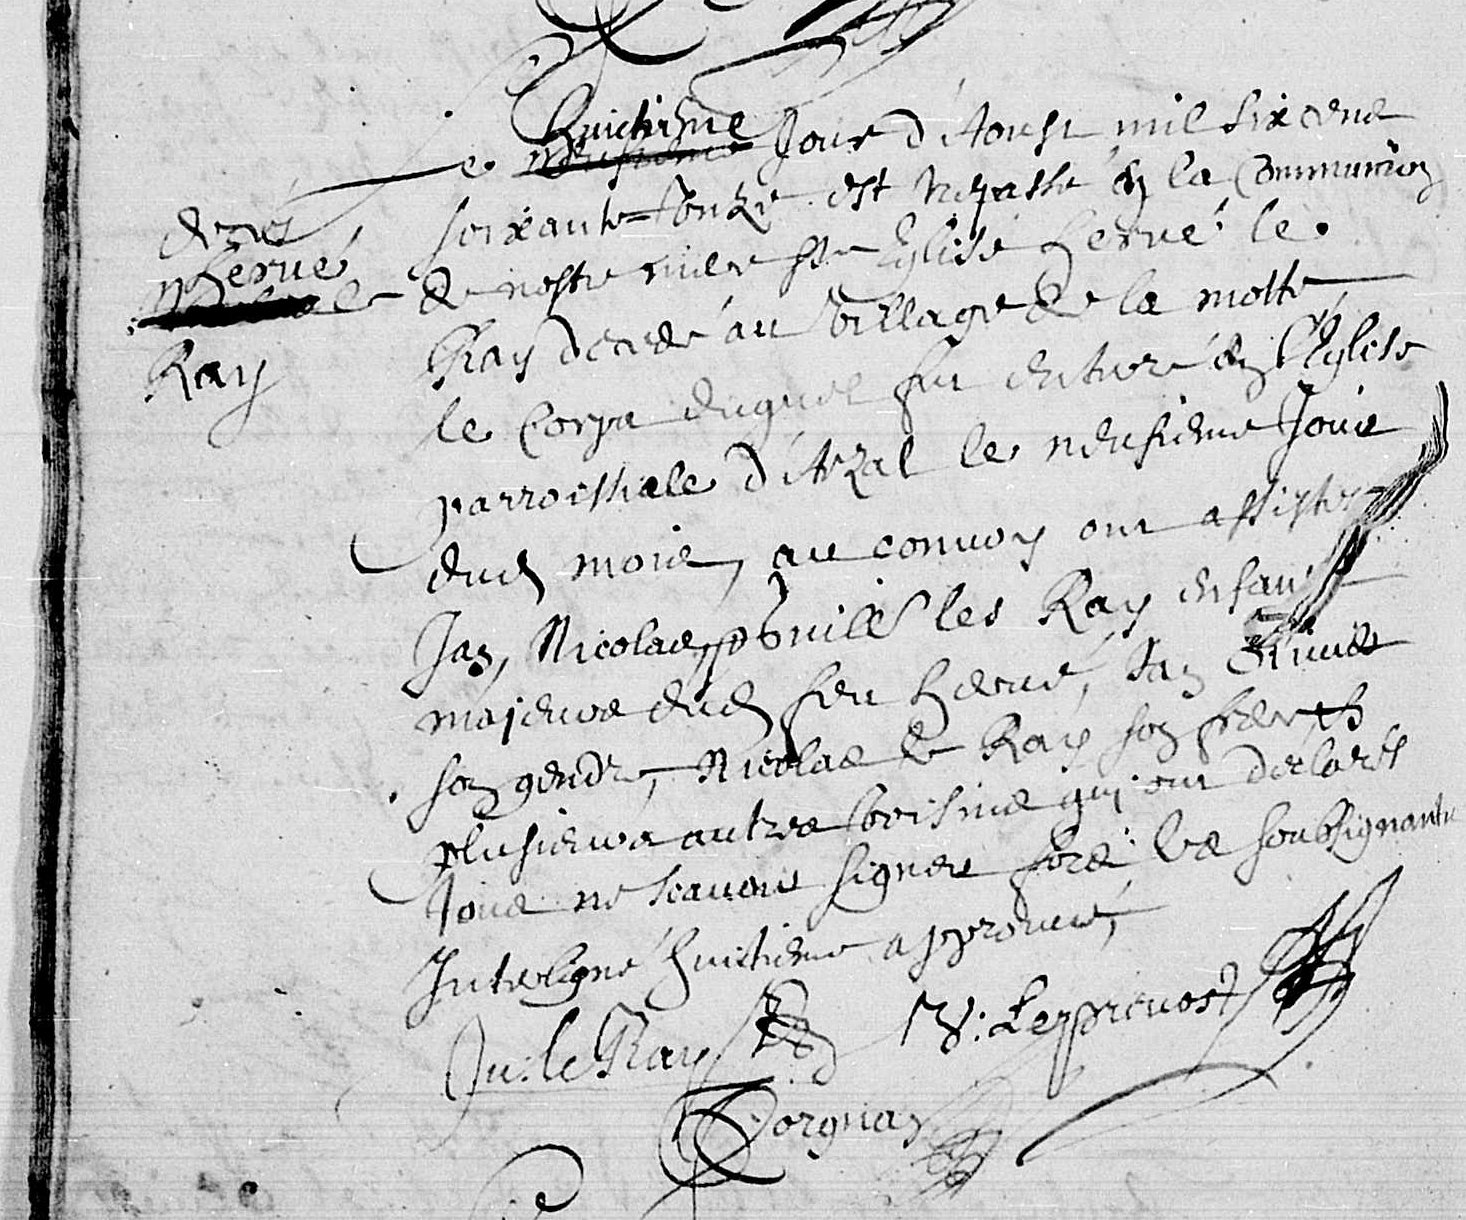 deces
Hervé
le
Ray
huictiesme
Le jour d'Aoust mil six cens
soixante & onze est trepassé en la Communion
de nostre mere ste Eglise Hervé le
Ray decedé au village de la motte
le corps duquel fu enterré en l'Eglise
parroissiale d'Arzal le neufieme jour
dud mois, au convoy ont assisté
Jan, Nicolas, les Ray enfans
majeurs dud feu Hervé, Jan
son gendre, Nicolas le Ray son frere &
plusieurs autres voisins qui ont declaré
tous ne scavoir signer fors les soubsignants
Interligné huictieme approuvé,
Ju: le Ray
Y: Leprevost
Dorgnan